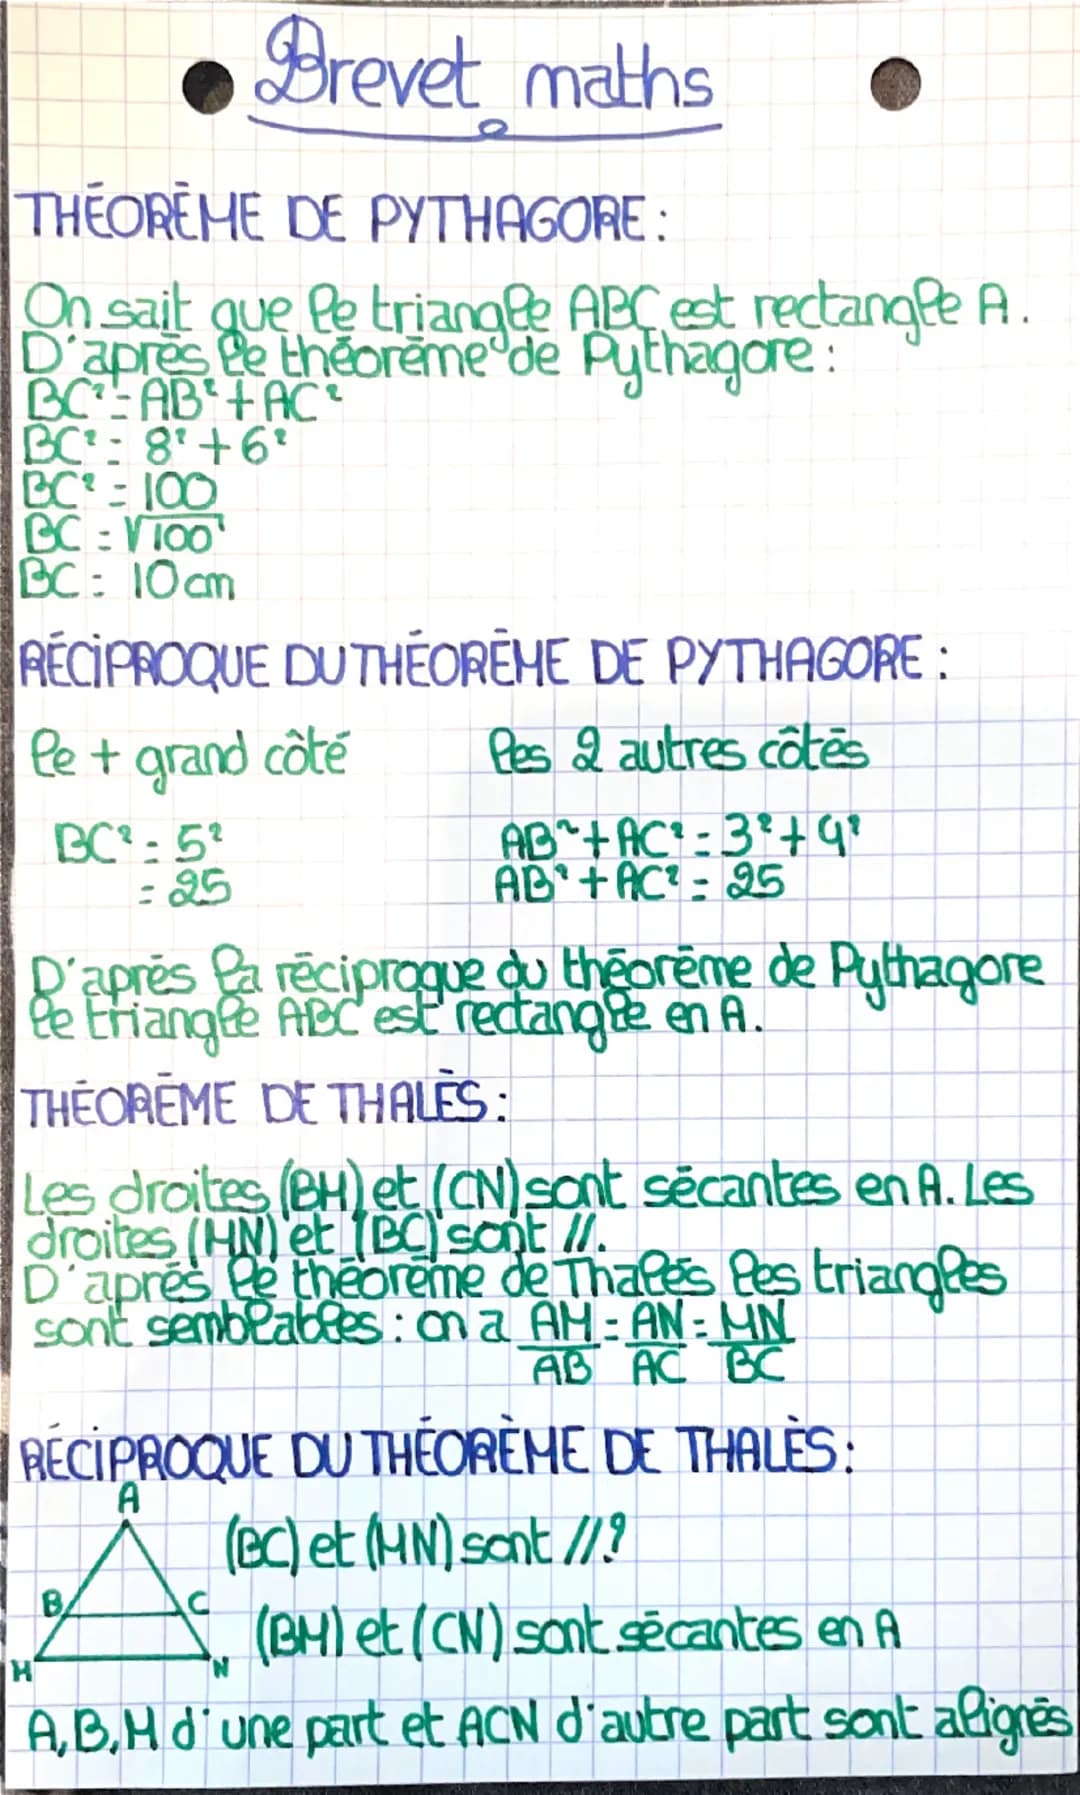 Brevet maths
THÉORÈME DE PYTHAGORE :
On sait que le triangle ABC est rectangle A.
D'après le théorème de Pythagore :
BC² = AB² + AC²
BC² = 8² + 6²
BC² = 100
BC = √100
BC = 10 cm
RÉCIPROQUE DU THÉORÈME DE PYTHAGORE :
le + grand côté
les 2 autres côtés
BC² = 5²
= 25
AB² + AC² = 3² + 4²
AB² + AC² = 25
D'après la réciproque du théorème de Pythagore
le triangle ABC est rectangle en A.
THÉORÈME DE THALÈS :
Les droites (BM) et (CN) sont sécantes en A. Les
droites (MN) et (BC) sont //.
D'après le théorème de Thalès les triangles
sont semblables : on a AM/AB = AN/AC = MN/BC
RÉCIPROQUE DU THÉORÈME DE THALÈS :
A
(BC) et (MN) sont // ?
B C
(BM) et (CN) sont sécantes en A
M N
A, B, M d'une part et ACN d'autre part sont alignés